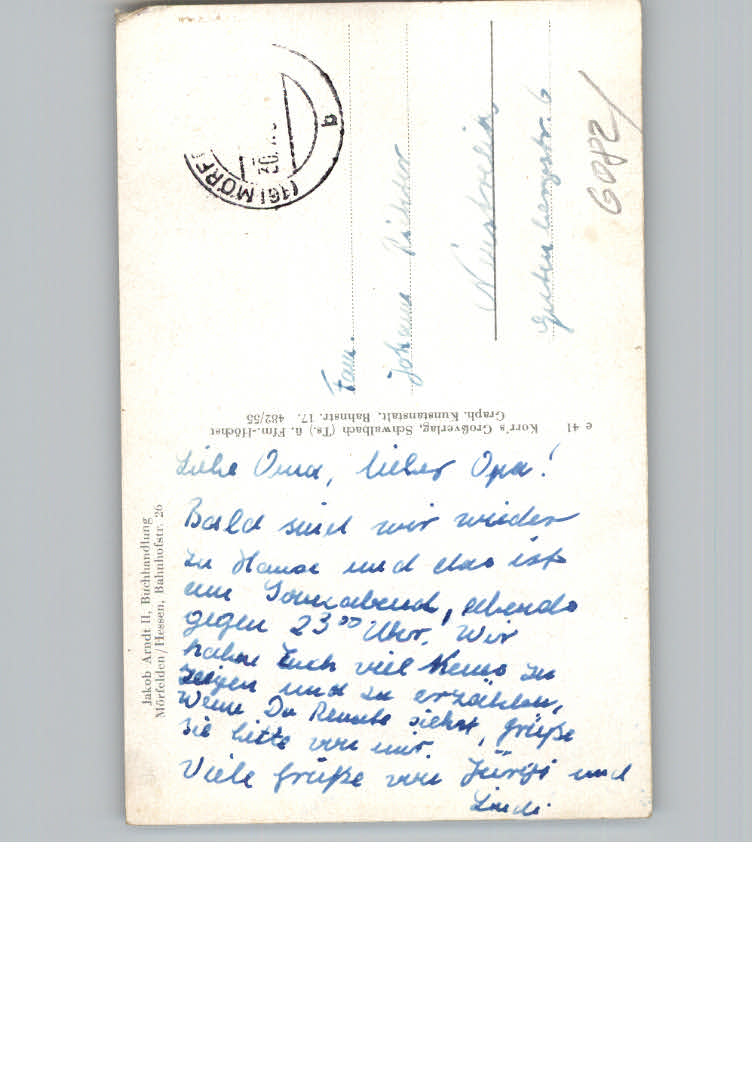 Liebe Oma, lieber Opa!
Bald sind wir wieder
zu Hause und das ist
am Sonnabend, abends
gegen 23⁰⁰ Uhr. Wir
haben Euch viel Neues zu
zeigen und zu erzählen,
Wenn Du Renate siehst, grüße
sie bitte von mir.
Viele Grüße von Jürgi und
Lindi
Jakob Arndt II, Buchhandlung
Mörfelden/Hessen, Bahnhofstr. 26
e 41 Korr's Großverlag, Schwalbach (Ts.) ü. Ffm.-Höchst
Graph. Kunstanstalt, Bahnstr. 17. 482/55
(16) MÖRF
30.
b
Fam.
Johann Richter
Neustrelitz
Gutenbergstr. 6
6082/